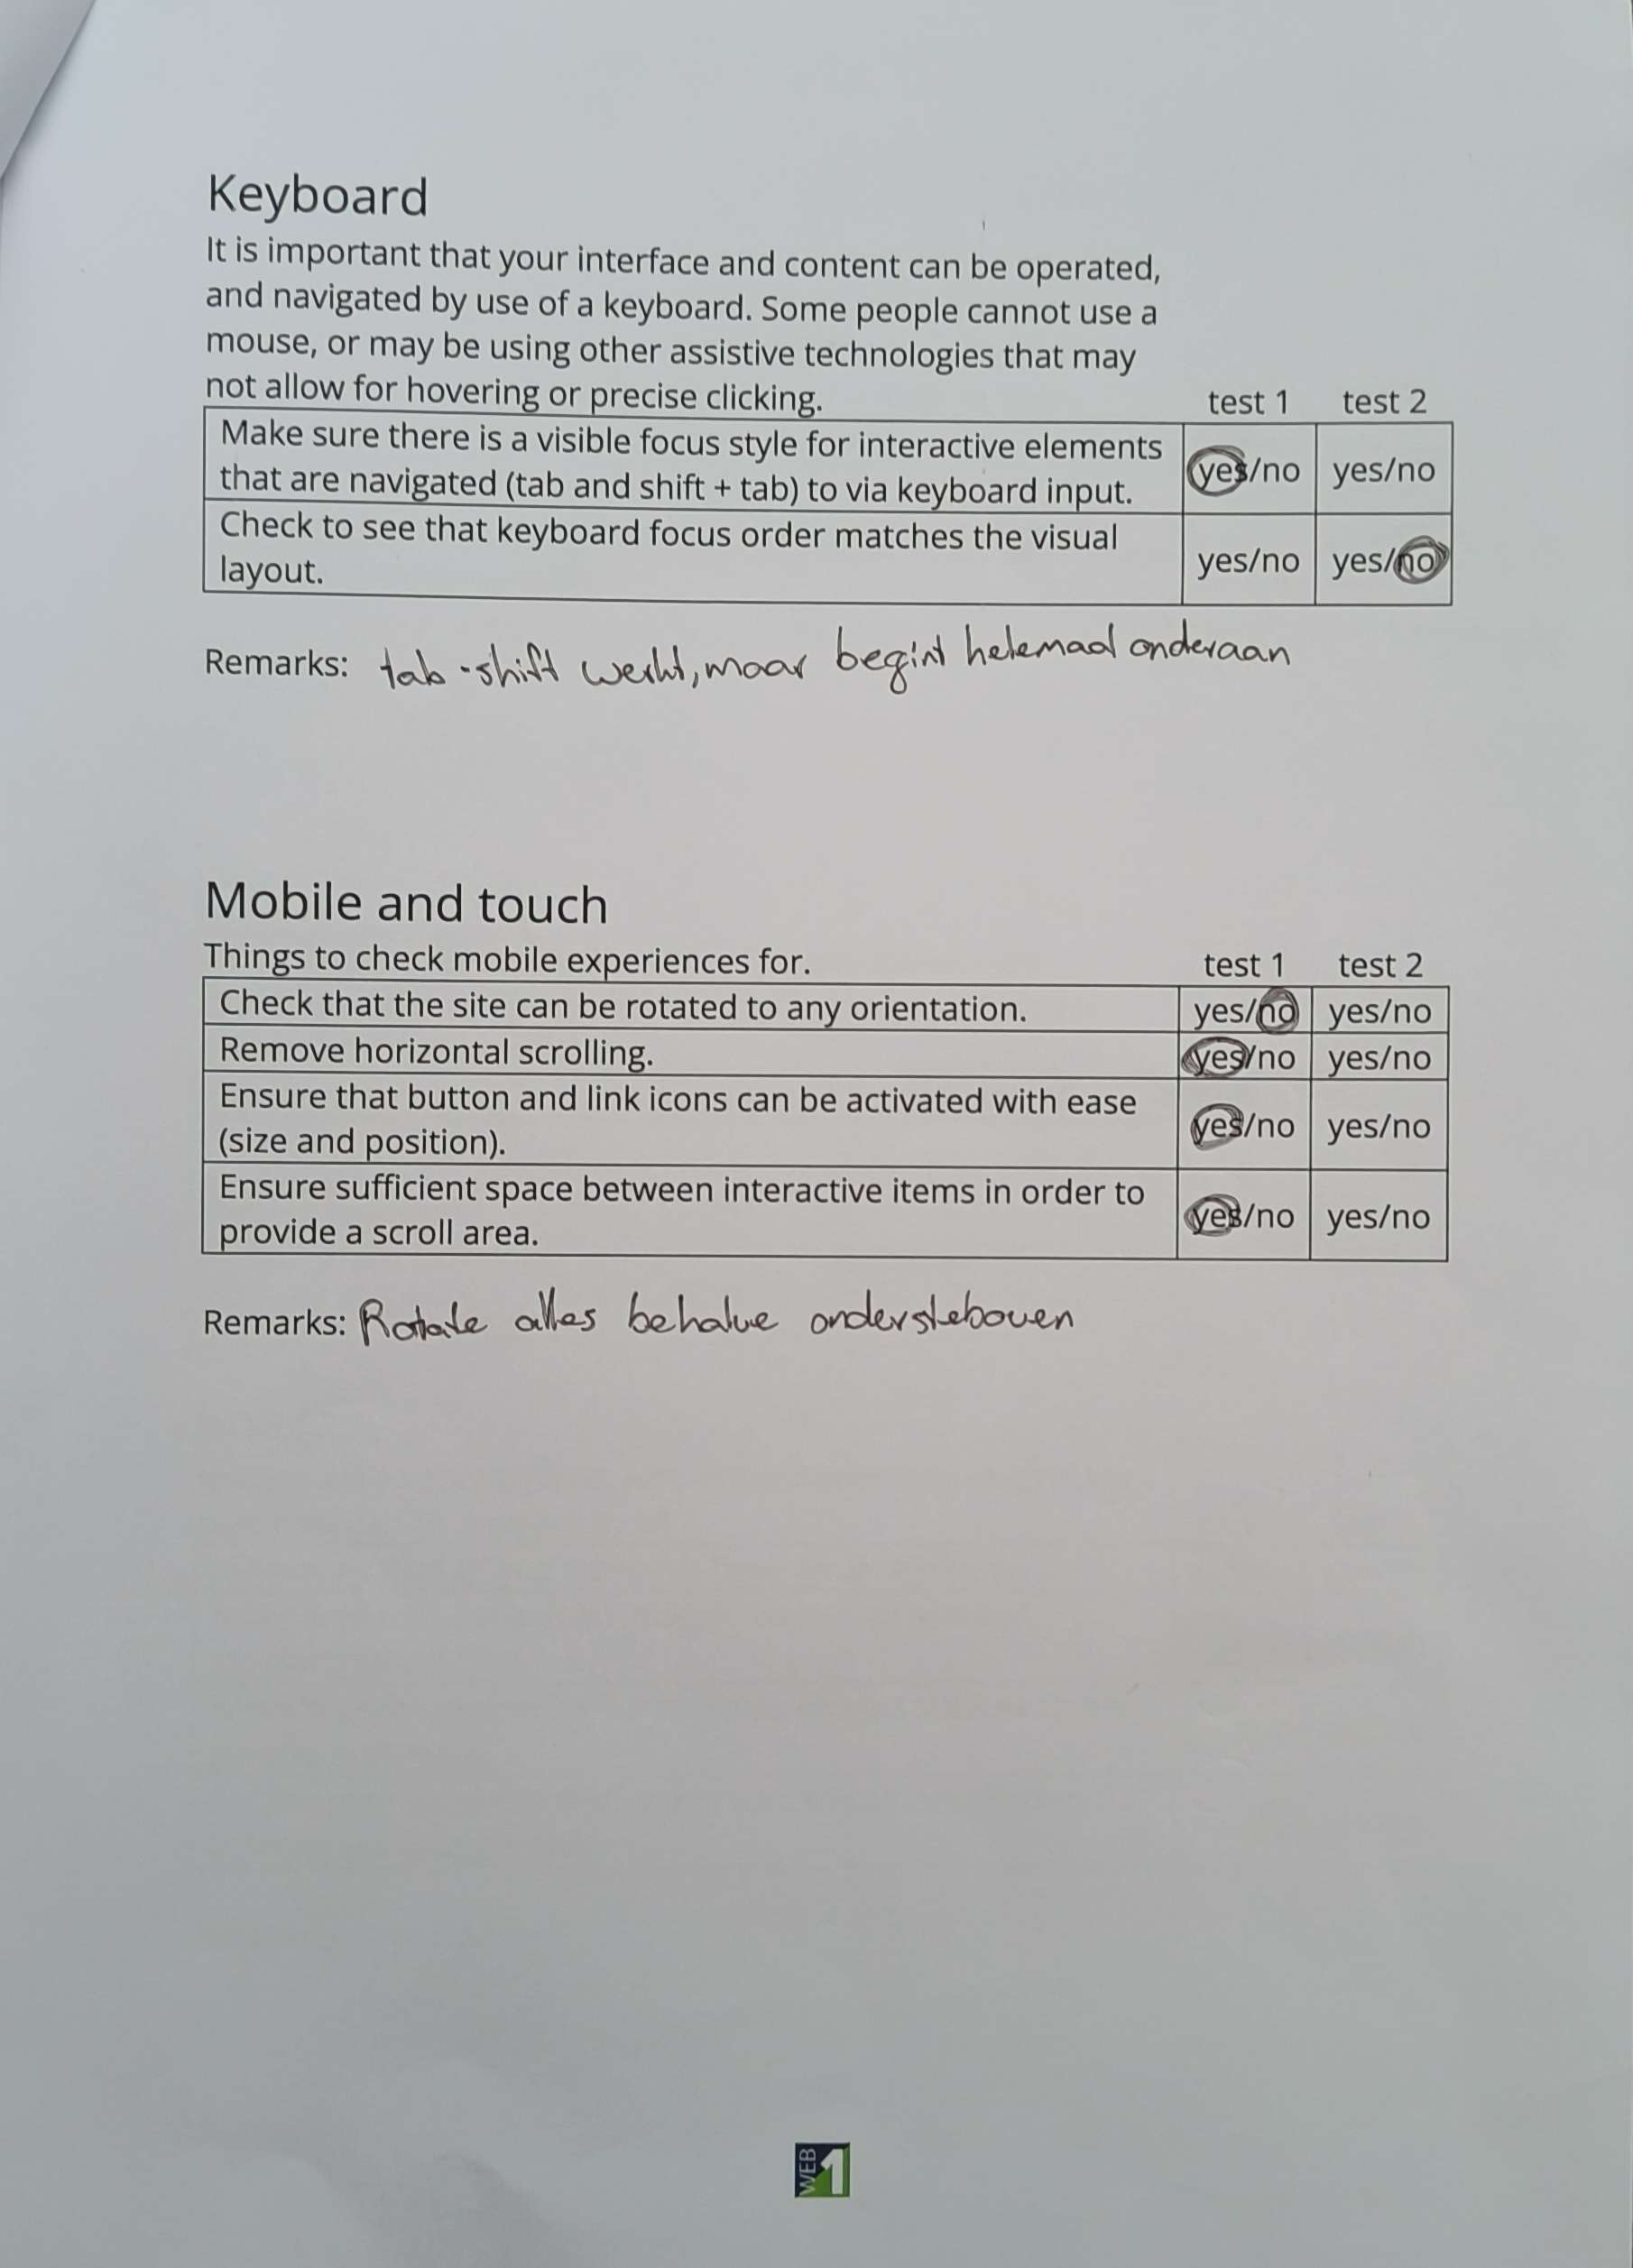 Keyboard
It is important that your interface and content can be operated,
and navigated by use of a keyboard. Some people cannot use a
mouse, or may be using other assistive technologies that may
not allow for hovering or precise clicking. test 1 test 2
Make sure there is a visible focus style for interactive elements
that are navigated (tab and shift + tab) to via keyboard input. yes/no yes/no
Check to see that keyboard focus order matches the visual
layout. yes/no yes/no
Remarks: tab-shift werkt, maar begint helemaal onderaan
Mobile and touch
Things to check mobile experiences for. test 1 test 2
Check that the site can be rotated to any orientation. yes/no yes/no
Remove horizontal scrolling. yes/no yes/no
Ensure that button and link icons can be activated with ease
(size and position). yes/no yes/no
Ensure sufficient space between interactive items in order to
provide a scroll area. yes/no yes/no
Remarks: Rotate alles behalve ondersteboven
WEB 1